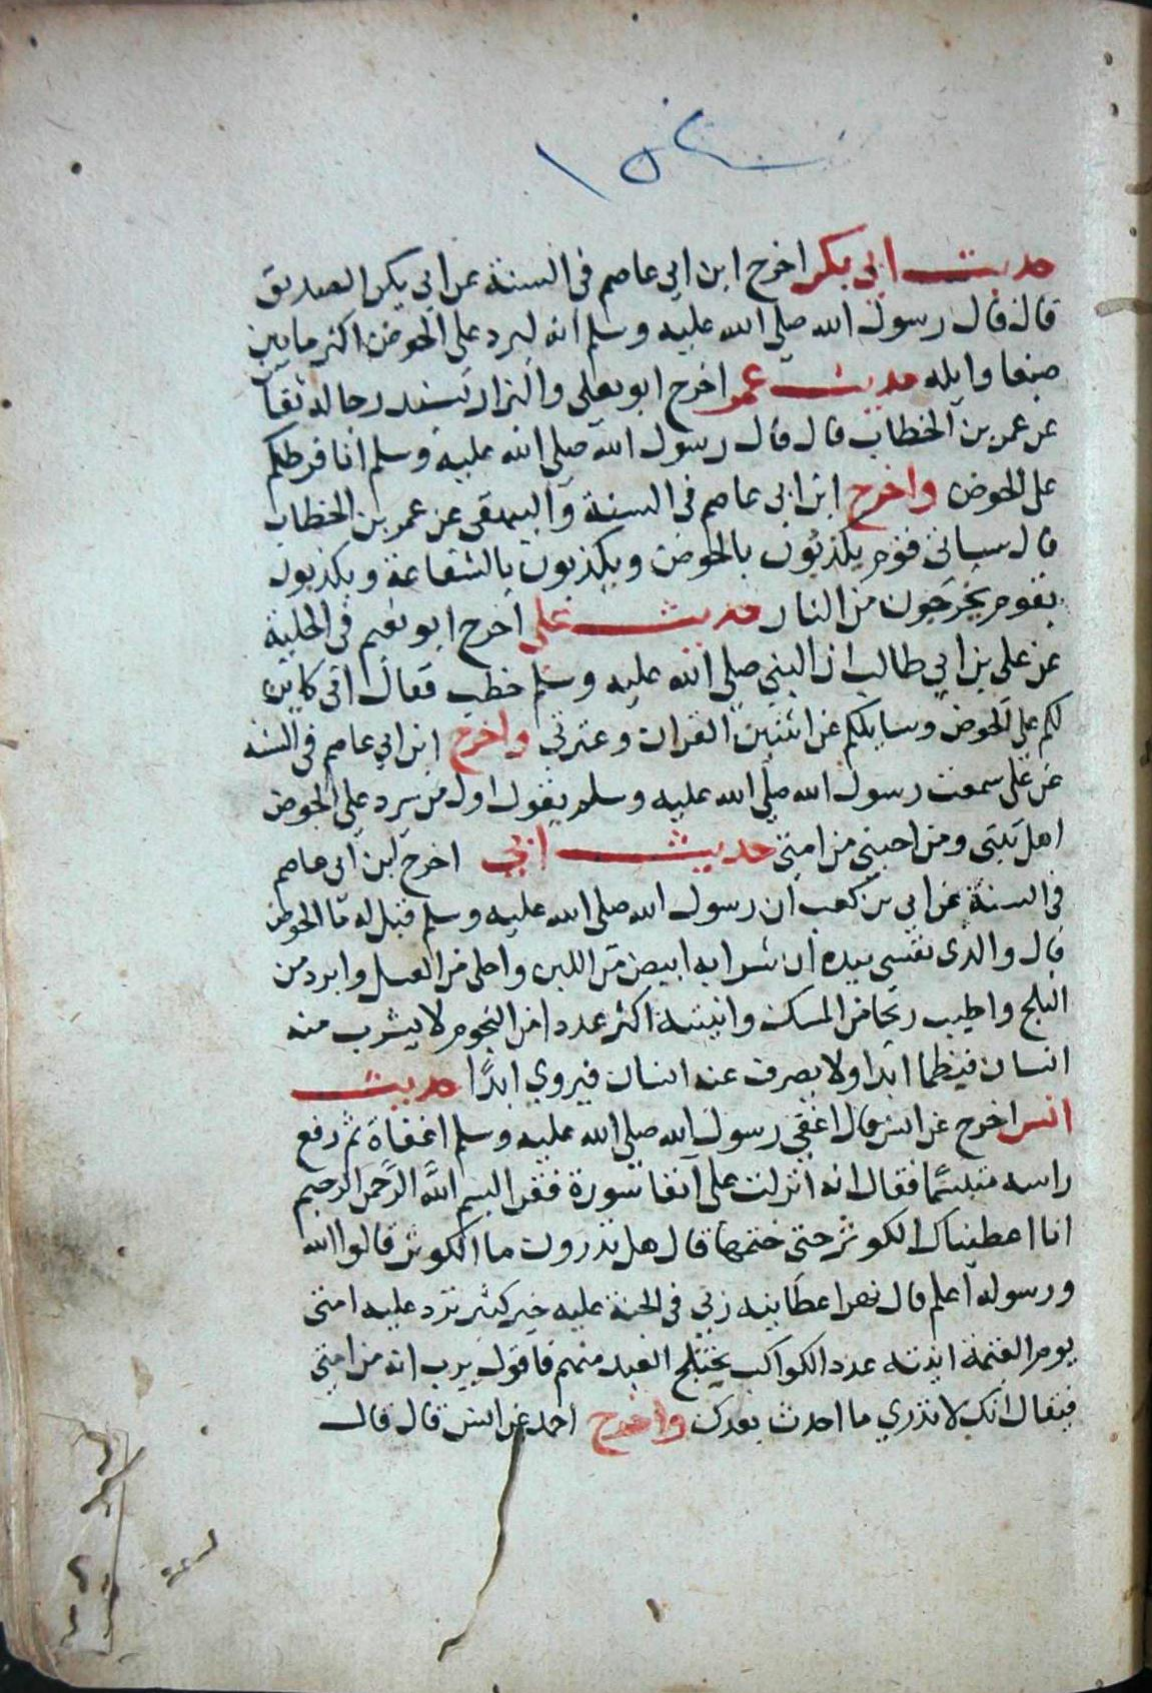 حديث ابي بكر اخرج ابن ابي عاصم في السنة عن ابي بكر الصديق
قال قال رسول الله صلي الله عليه وسلم انه ليرد علي الحوض اكثر ما بين
صنعا وايله حديث عمر اخرج ابو يعلي والبزار بسند رجاله ثقات
عن عمر بن الخطاب قال قال رسول الله صلي الله عليه وسلم انا فرطكم
علي الحوض واخرج ابن ابي عاصم في السنة والبيهقي عن عمر بن الخطاب
قال سياتي قوم يكذبون بالحوض ويكذبون بالشفاعة ويكذبون
بقوم يخرجون من النار حديث علي اخرج ابو نعيم في الحلية
عن علي بن ابي طالب ان النبي صلي الله عليه وسلم خطب فقال اني كاين
لكم علي الحوض وسايلكم عن اثنين القران وعترتي واخرج ابن ابي عاصم في السنه
عن علي سمعت رسول الله صلي الله عليه وسلم يقول اول من يرد علي الحوض
اهل بيتي ومن احبني من امتي حديث ابي اخرج ابن ابي عاصم
في السنة عن ابي بن كعب ان رسول الله صلي الله عليه وسلم قيل له ما الحوض
قال والذي نفسي بيده ان شرابه ابيض من اللبن واحلي من العسل وابرد من
الثلج واطيب ريحا من المسك وانيته اكثر عددا من النجوم لا يشرب منه
انسان فيظما ابدا ولا يصرف عنه انسان فيروي ابدًا حديث
انس اخرج عن انس قال اغفي رسول الله صلي الله عليه وسلم اغفاة ثم رفع
راسه متبسمًا فقال انه انزلت علي آنفا سورة فقرا بسم الله الرحمن الرحيم
انا اعطيناك الكوثر حتي ختمها قال هل تدرون ما الكوثر قالوا الله
ورسوله اعلم قال نهر اعطانيه ربي في الجنة عليه خير كثير ترد عليه امتي
يوم القيمة انيته عدد الكواكب يختلج العبد منهم فاقول يرب انه من امتي
فيقال انك لا تدري ما احدث بعدك واخرج احمد عن انس قال قال